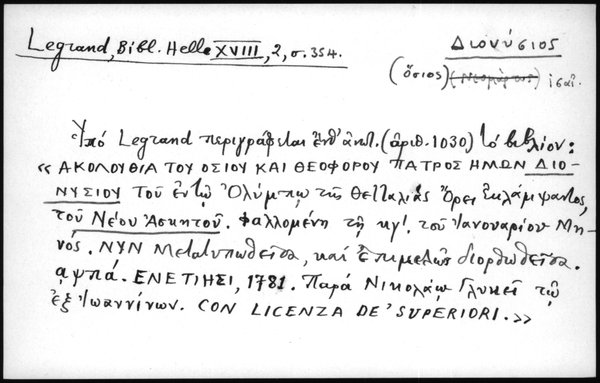 Legrand, Bibl. Helle XVIII, 2, σ. 354.
Διονύσιος
(ὅσιος) (Νεομάρτυς)
Ὑπό Legrand περιγράφεται ἐνθ' ἀνωτ. (ἀριθ. 1030) τό βιβλίον:
« ΑΚΟΛΟΥΘΙΑ ΤΟΥ ΟΣΙΟΥ ΚΑΙ ΘΕΟΦΟΡΟΥ ΠΑΤΡΟΣ ΗΜΩΝ ΔΙΟ-
ΝΥΣΙΟΥ Τοῦ ἐν τῷ Ὀλύμπῳ τῆς Θετταλίας Ὄρει Ἐκλάμψαντος,
τοῦ Νέου Ἀσκητοῦ. Ψαλλομένη τῇ κγ'. τοῦ Ἰανουαρίου Μη-
νός. ΝΥΝ Μετατυπωθεῖσα, καί Ἐπιμελῶς διορθωθεῖσα.
αψπά. ΕΝΕΤΙΗΣΙ, 1781. Παρά Νικολάῳ Γλυκεῖ τῷ
ἐξ Ἰωαννίνων. CON LICENZA DE' SUPERIORI. »